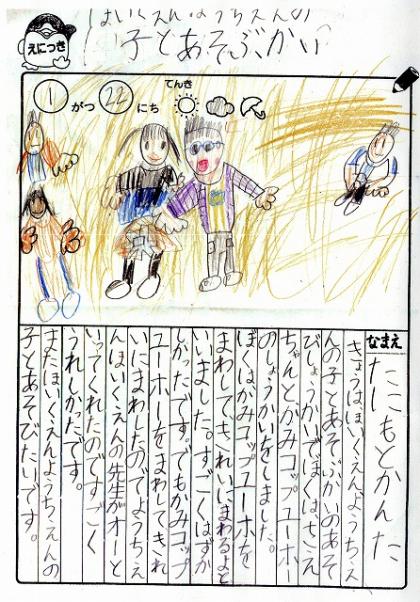 ほいくえんようちえんの
子とあそぶかい
えにっき
1がつ22にち
てんき
なまえ
たにもとかんた
きょうは、ほいくえんようちえ
んの子とあそぶかいのあそ
びしょうかいでぼくは、ちえ
ちゃんとかみコップユーホー
のしょうかいをしました。
ぼくはかみコップユーホーを
まわして、きれいにまわるよと
いいました。すごくはずか
しかったです。でもかみコップ
ユーホーをまわしてきれ
いにまわしたのでようちえ
んほいくえんの先生がオーと
いってくれたのですごく
うれしかったです。
またほいくえんようちえんの
子とあそびたいです。